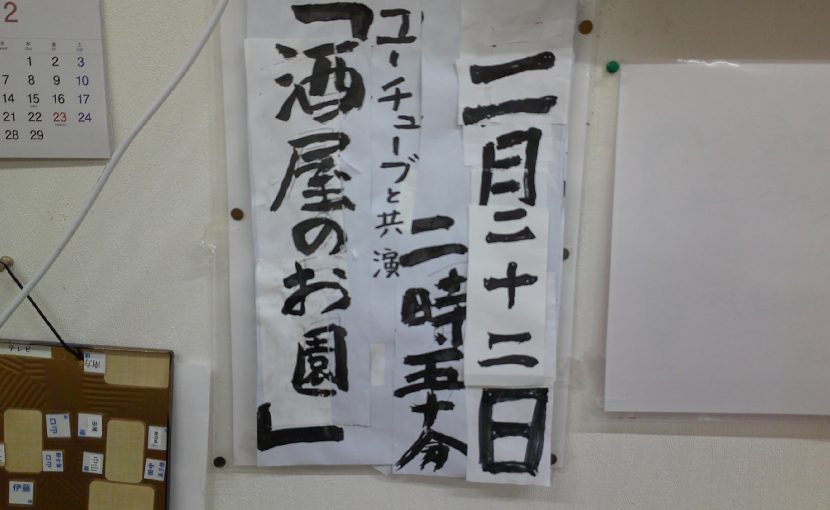 二月二十二日
二時五十分
ユーチューブと共演
「酒屋のお園」
2
木 金 土
1 2 3
7 8 9 10
14 15 16 17
21 22 23 24
28 29
テレビ
伊藤